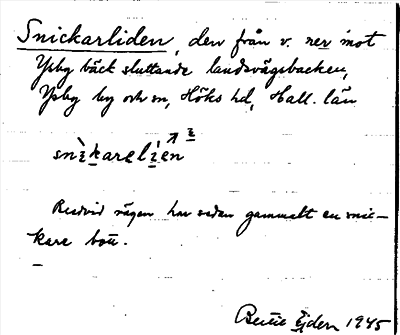 Snickarliden, den från v. ner mot
Ysby bäck sluttande landsvägsbacken,
Ysby by och sn, Höks hd, Hall. län
snikarelien
vid vägen har sedan gammalt en snic-
kare bott.
Bertil Ejder 1945